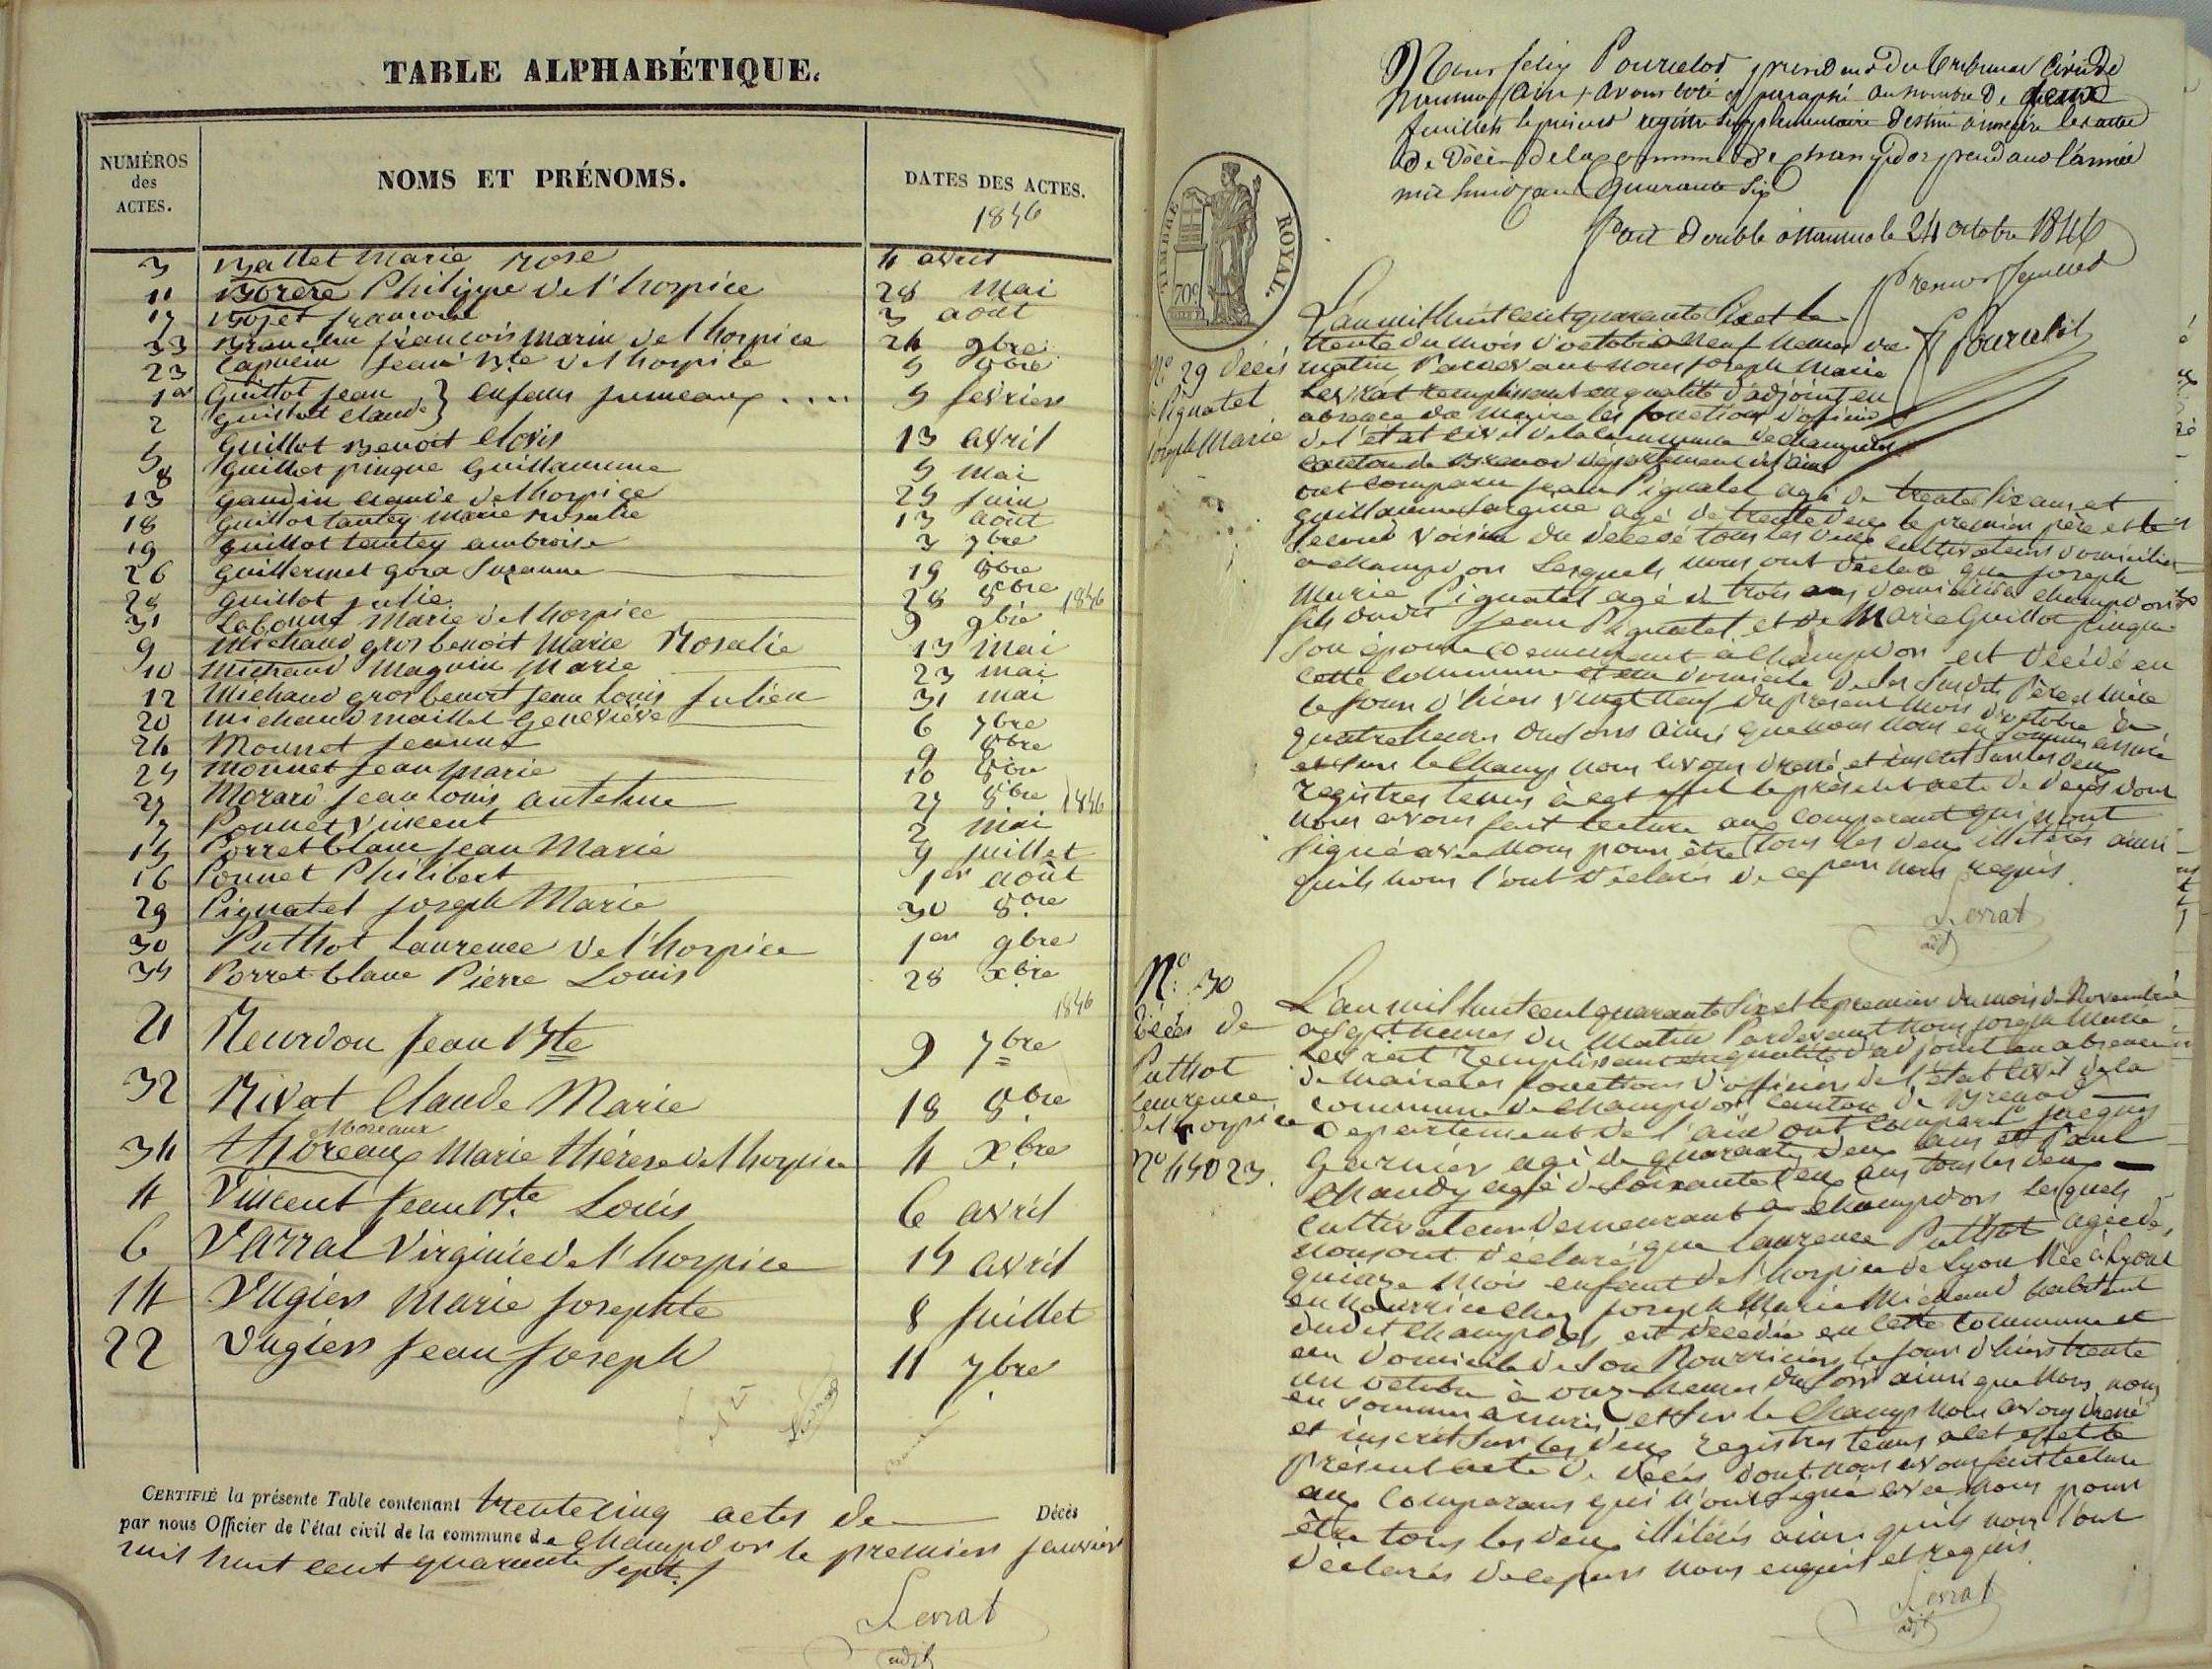 TABLE ALPHABÉTIQUE.
NUMÉROS des ACTES. NOMS ET PRÉNOMS. DATES DES ACTES. 1846
3 Ballet Marie Rose 4 avril
11 Philippe de l'hospice 28 mai
17 françois 3 août
33 françois marie de l'hospice 24 9bre
23 Capucin Jean Bte de l'hospice 5 8bre
1er Guillot Jean } enfans jumeaux.... 5 fevrier
2 guillot claude
5 Guillot Benoit clovis 13 avril
8 Guillot pinque Guillaumme 5 mai
13 gaudin claude de l'hospice 25 juin
18 Guillot tantey marie rosalie 13 août
19 guillot tantey ambroise 3 7bre
26 guillermet gora Suzanne 19 8bre
28 guillot julie 28 8bre 1846
31 Labonne Marie de l'hospice 9 9bre
9 Michaud gros benoit Marie Rosalie 13 mai
10 Michaud Magnin Marie 23 mai
12 Michaud gros benoit Jean Louis Julien 31 mai
20 michaud maillet Geneviève 6 7bre
24 Monnet Jeanne 9 8bre
25 monnet Jean Marie 10 8bre
27 Morard Jean Louis antelme 27 8bre 1846
7 Ponnet Vincent 2 mai
15 Porret blanc Jean Marie 9 juillet
16 Ponnet Philibert 1er août
29 Pignatel joseph Marie 30 8bre
30 Puthot Laurence de l'hospice 1er 9bre
35 Porret blanc Pierre Louis 28 xbre
1846
21 Reurdon Jean Bte 9 7bre
32 Rivat Claude Marie 18 8bre
Moreaux
34 thoreaux Marie thérèse de l'hospice 4 xbre
4 Vincent Jean Bte Louis 6 avril
6 Varral Virginie de l'hospice 15 avril
14 Vugier Marie Josephte 8 Juillet
22 Vugier Jean Joseph 11 7bre
CERTIFIÉ la présente Table contenant trente cinq actes de Décès
par nous Officier de l'état civil de la commune de champdor le premier janvier
mil huit cent quarante sept.
Levrat
adjt
Nous felix Pourcelot président du tribunal Civil de
Nantua (Ain) avons coté et paraphé au nombre de deux
feuillets le présent registre supplémentaire destiné à inscrire les actes
de Décès de la commune de champdor pendant l'année
mil huit cent quarante Six
fait double à Nantua le 24 octobre 1846
Premier feuillet
f Pourcelot
TIMBRE ROYAL.
70c
No 29 Décès
de Pignatel
Joseph Marie
L'an mil huit cent quarante Six et le
trente du mois d'octobre Neuf heures du
matin Pardevant nous joseph Marie
Levrat remplissant en qualité d'adjoint en
absence du maire les fonctions d'officier
de l'état civil de la commune de champdor
canton de Brenod département de l'ain
ont comparu Jean Pignatel agé de trente Six ans et
guillaume agé de trente deux le premier père et le
second voisin du décédé tous les deux cultivateurs domiciliés
a champdor Lesquels nous ont déclaré que joseph
Marie Pignatel agé de trois ans domicilié a champdor
fils dudit Jean Pignatel et de Marie Guillot pinque
Son épouse demeurant a champdor est décédé en
cette commune et au domicile de Ses Susdits Père et Mère
le jour d'hier vingt neuf du présent mois d'octobre a
quatre heures du Soir ainsi que nous nous en Sommes assuré
et Sur le Champ nous avons dressé et inscrit Sur les deux
registres tenus à cet effet le présent acte de Décès dont
nous avons fait lecture aux comparant qui n'ont
Signé avec nous pour être tous les deux illitérés ainsi
qu'ils nous l'ont déclaré de ce par nous requis.
Levrat
adjt
No 30
Décès de
Puthot
laurence
de l'hospice
No 45023.
L'an mil huit cent quarante Six et le premier du mois de Novembre
a Sept heures du Matin Pardevant nous joseph Marie
Levrat remplissant en qualité d'adjoint en absence
du maire les fonctions d'officier de l'état civil de la
commune de champdor canton de Brenod
département de l'ain ont comparu jacques
Garnier agé de quarante deux ans et Paul
Chandy agé de Soixante deux ans tous les deux
cultivateurs demeurant a champdor Lesquels
nous ont déclaré que laurence Puthot agée de
quinze mois enfant de l'hospice de Lyon Née à Lyon
en nourrice chez joseph Marie Michaud habitant
dudit champdor est décédée en cette commune et
au domicile de Son Nourricier le jour d'hier trente
un octobre à onze heures du Soir ainsi que Nous nous
en Sommes assuré et Sur le Champ nous avons dressé
et inscrit Sur les deux registres tenus a cet effet le
présent acte de Décès dont nous avons fait lecture
aux comparans qui n'ont Signé avec nous pour
être tous les deux illitérés ainsi qu'ils nous l'ont
déclarés de ce par nous enquis et requis
Levrat
adjt